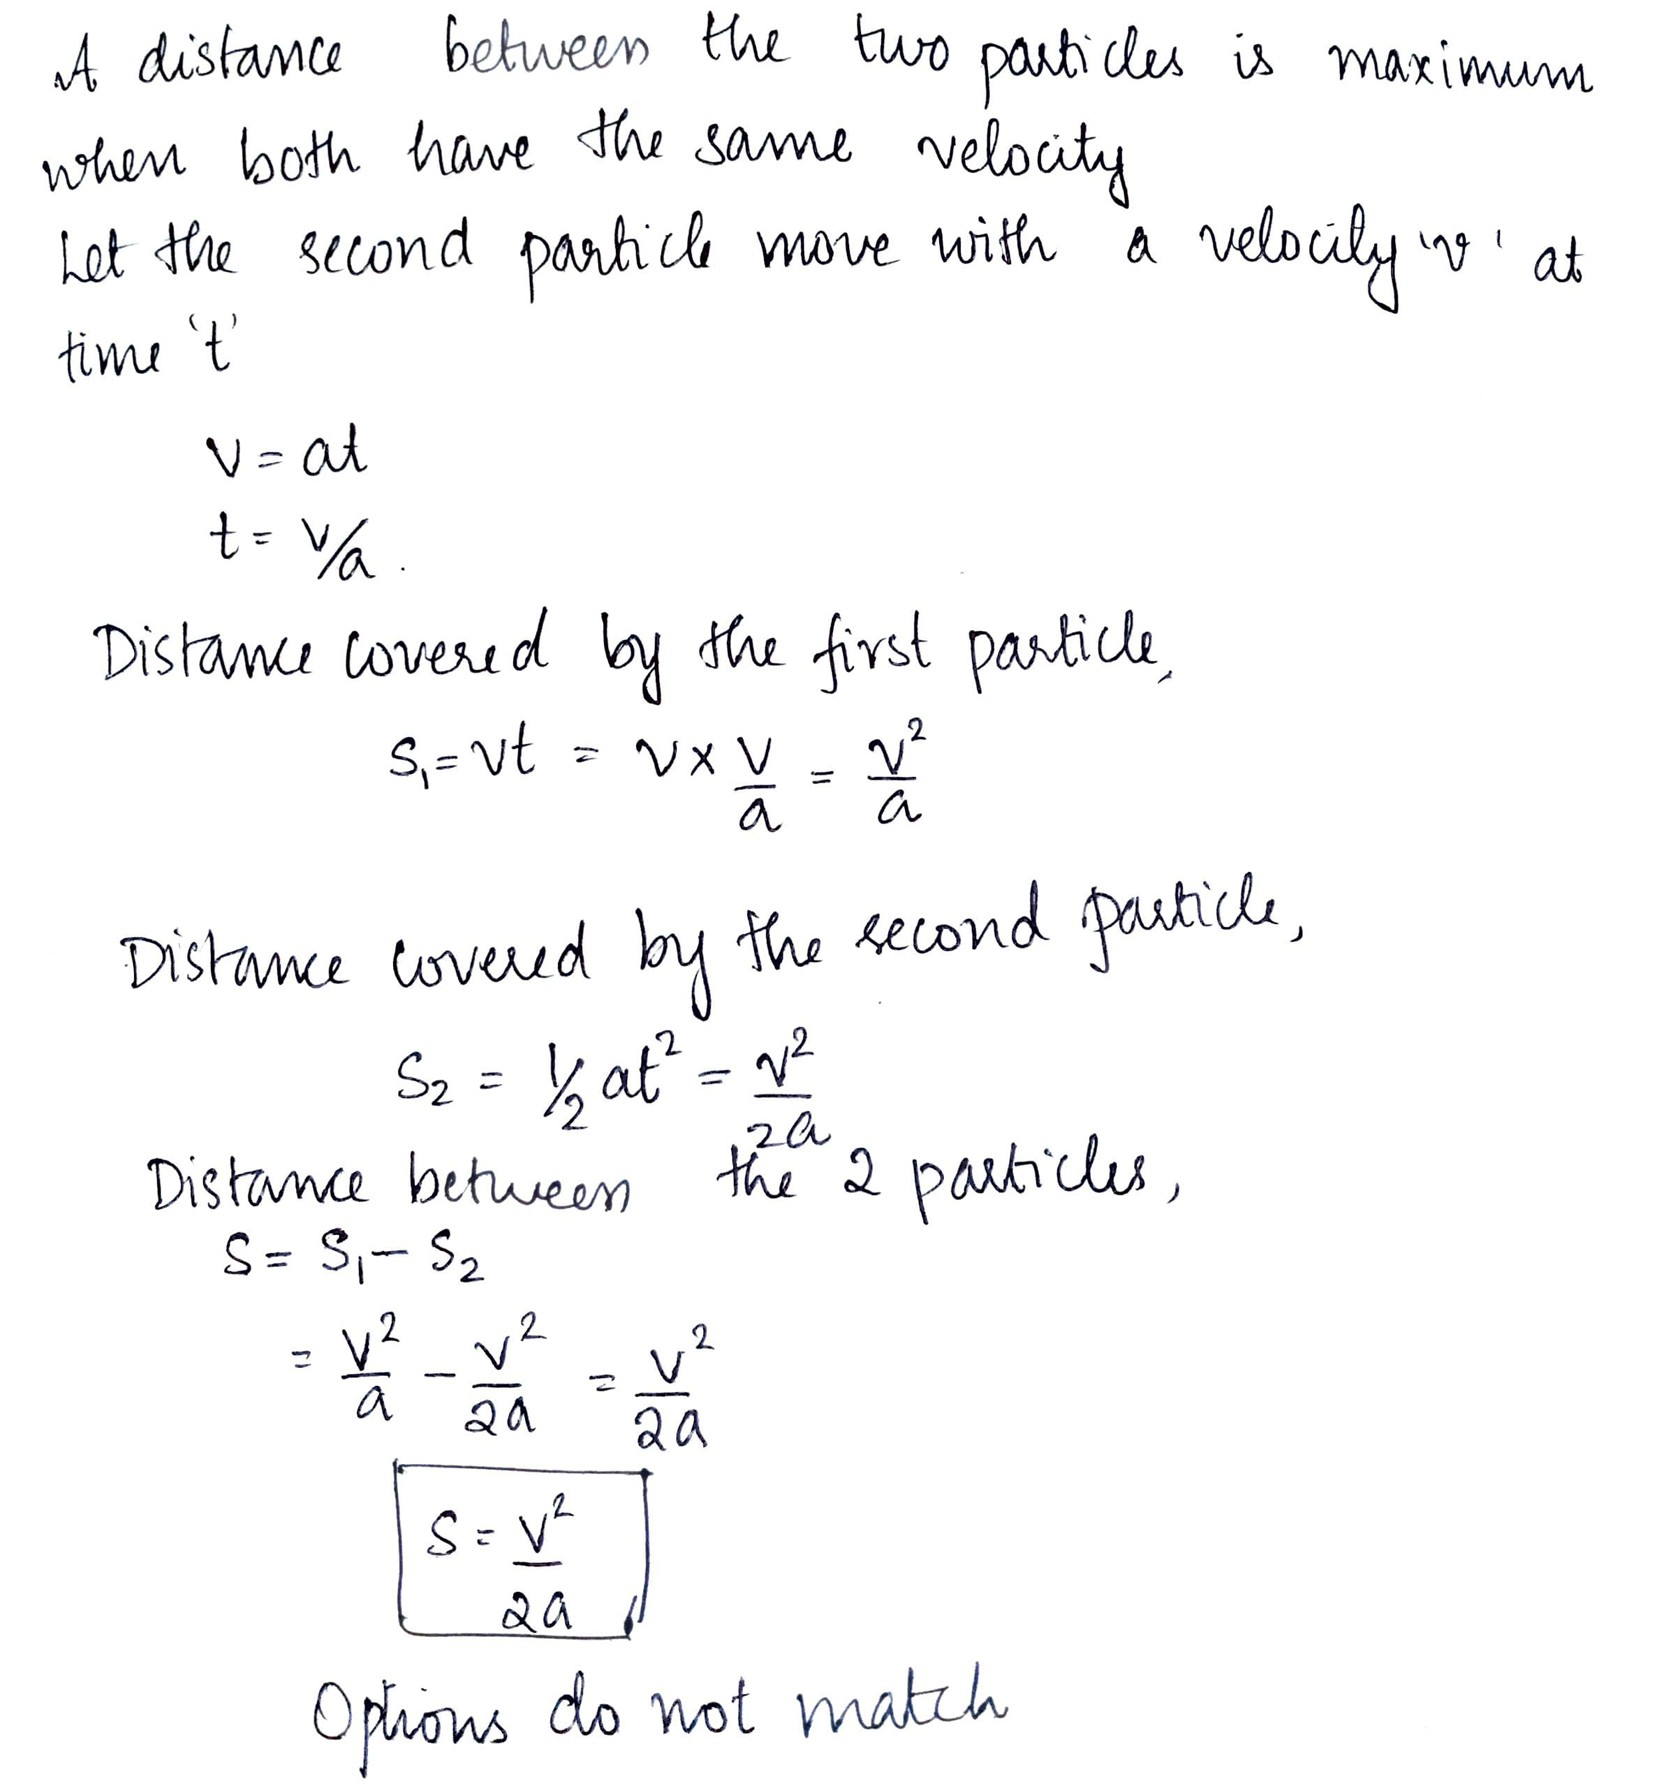 A distance between the two particles is maximum
when both have the same velocity
Let the second particle move with a velocity 'v' at
time 't'
v = at
t = v/a .
Distance covered by the first particle,
S₁ = vt = v x v/a = v²/a
Distance covered by the second particle,
S₂ = ½ at² = v²/2a
Distance between the 2 particles,
S = S₁ - S₂
= v²/a - v²/2a = v²/2a
S = v²/2a
Options do not match